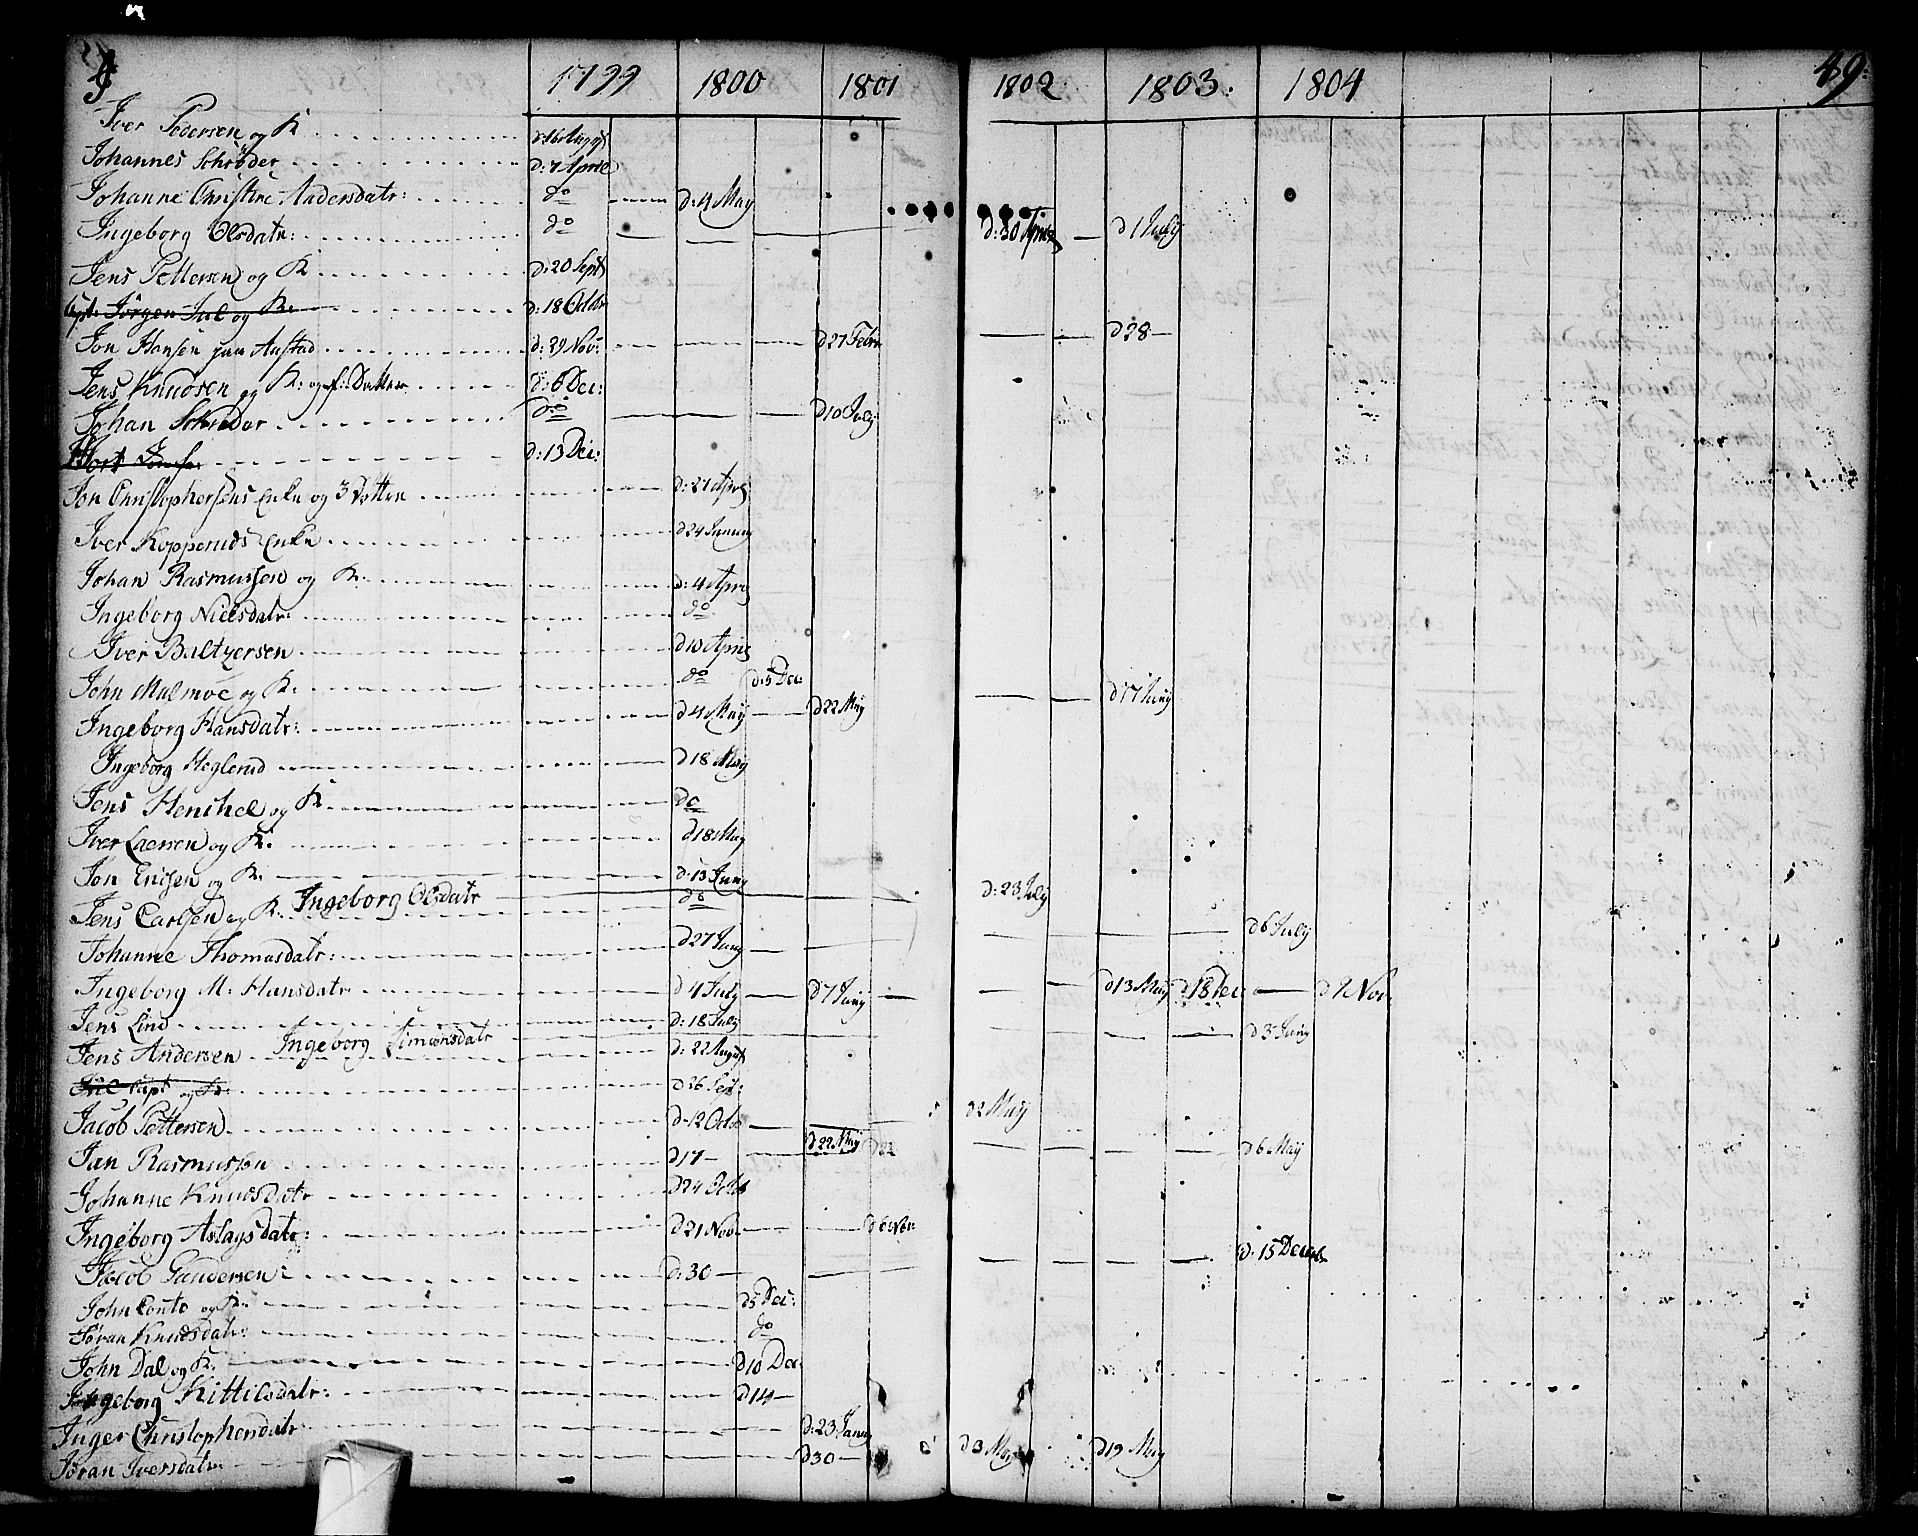 J 1799 1800 1801 1802 1803. 1804 49.
Iver Pedersen og K d: 16 Augst
Johannes Schrøder d: 7 April
Johanne Christine Andersdatr: do d: 4 May
Ingeborg Olsdatr: do d: 30 April d 1 July
Jens Pettersen og K d: 20 Sept
Capt: Jørgen Jul og K. d: 18 Octbr
Jon Hansen paa Aastad d: 29 Nov: d 27 Febr d 28
Jens Knudsen og K: og d: 6 Dec:
Johan Schrøder do d 10 July
d: 13 Dec:
Jon Christophersens Enke og 3 Døttre d: 27 April
Iver Kopperuds Enke d 24 January
Johan Rasmussen og K. d: 4 April
Ingeborg Nielsdatr: do
Iver Baltzersen d 10 April
John Malmoe og K. do d: 5 Dec: d 17 Juny
Ingeborg Hansdatr: d 4 May d 22 May
Ingeborg Heglerud d 18 May
Jens Henchel og K do
Iver Laersen og K. d 18 May
Jon Ericsen og K. d: 13 Juny
Ingeborg Olsdatr d: 23 July
Jens Carlsen og K. do
Johanne Thomasdatr: d 27 Juny d 6 July
Ingeborg M: Hansdatr d 4 July d 7 Juny d 13 May d 18 Dec d 9 Nov.
Jens Lind d: 18 July
Ingeborg Simensdatr d 3 Juny
Jens Andersen d: 22 August
Jul Capt og K: d 26 Sept:
Jacob Pettersen d: 12 Octbr d 2 May
Jan Rasmussen d 17 d 22 May d 22 d 6 May
Johanne Knudsdatr d 24 Octb
Ingeborg Aslagsdatr: d 21 Nov. d 6 Nov
Jacob Gundersen: d: 30 d: 15 Decemb
John Conto og K. d 5 Dec:
Jøran Knudsdatr: do
John Dal og K. d 10 Dec
Ingeborg Kittilsdatr: d 14
Inger Christophersdatr d: 23 Janu d 3 May d 19 May
Jøran Iversdatr. d 30